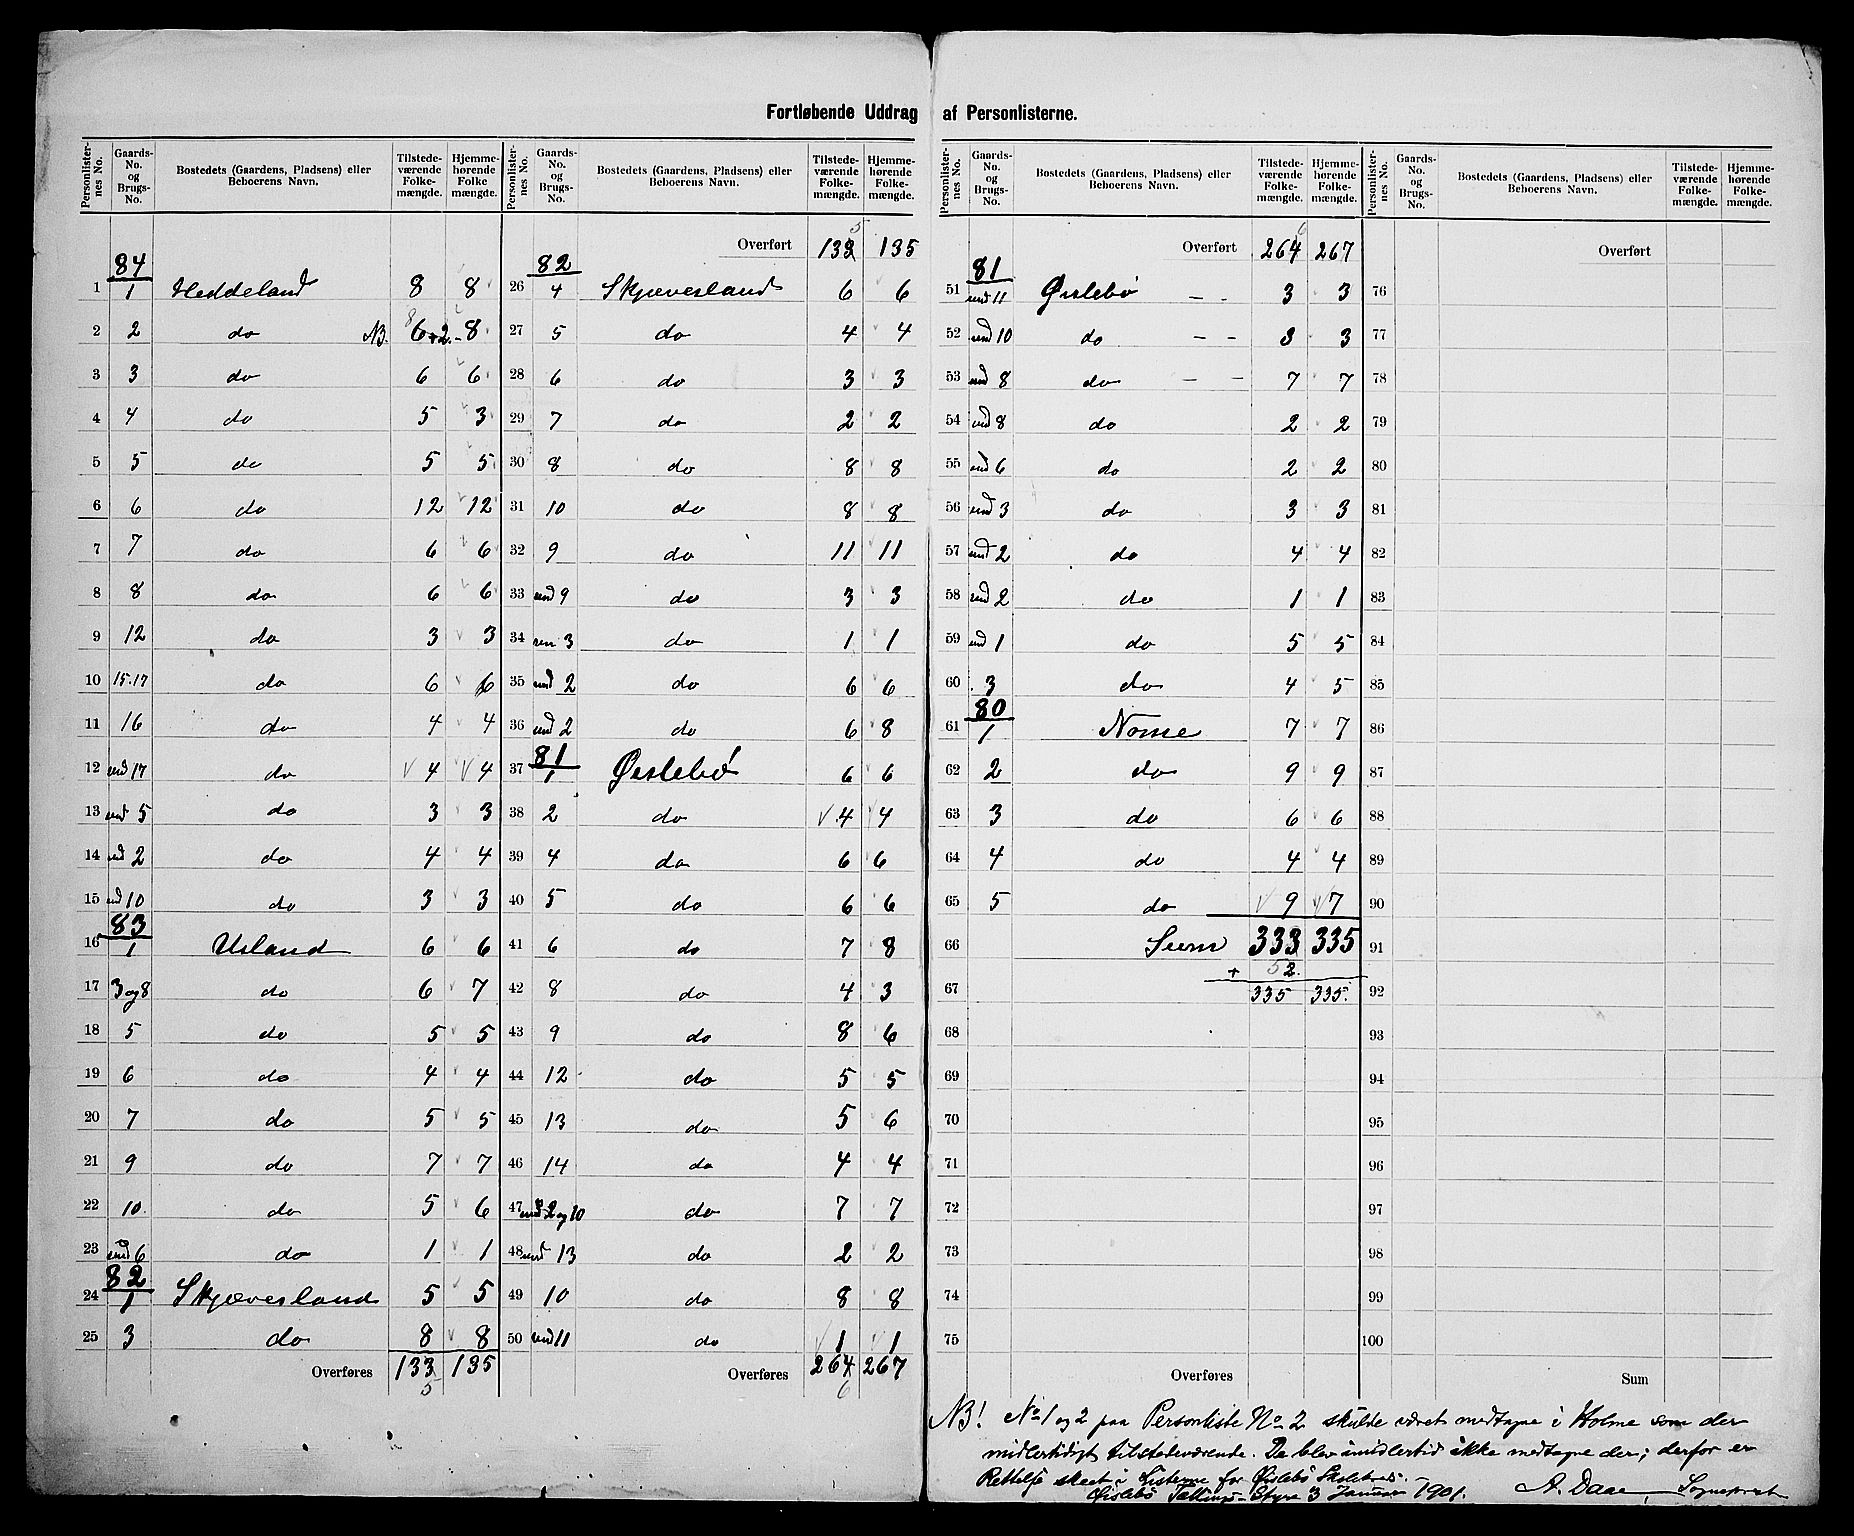 Fortløbende Uddrag af Personlisterne.
Personlister-nes No. | Gaards-No. og Brugs-No. | Bostedets (Gaardens, Pladsens) eller Beboerens Navn. | Tilstede-værende Folke-mængde. | Hjemme-hørende Folke mængde.
84
1 | 1 | Heddeland | 8 | 8
2 | 2 | do NB. | 8 6+2.- | 8
3 | 3 | do | 6 | 6
4 | 4 | do | 5 | 3
5 | 5 | do | 5 | 5
6 | 6 | do | 12 | 12
7 | 7 | do | 6 | 6
8 | 8 | do | 6 | 6
9 | 12 | do | 3 | 3
10 | 15.17 | do | 6 | 6
11 | 16 | do | 4 | 4
12 | und 17 | do | 4 | 4
13 | und 5 | do | 3 | 3
14 | und 2 | do | 4 | 4
15 | und 10 | do | 3 | 3
83
16 | 1 | Usland | 6 | 6
17 | 3 og 8 | do | 6 | 7
18 | 5 | do | 5 | 5
19 | 6 | do | 4 | 4
20 | 7 | do | 5 | 5
21 | 9 | do | 7 | 7
22 | 10. | do | 5 | 6
23 | und 6 | do | 1 | 1
82
24 | 1 | Skjævesland | 5 | 5
25 | 3 | do | 8 | 8
Overføres 133 135
5
Personlister-nes No. | Gaards-No. og Brugs-No. | Bostedets (Gaardens, Pladsens) eller Beboerens Navn. | Tilstede-værende Folke-mængde. | Hjemme-hørende Folke-mængde.
5
Overført 133 135
82
26 | 4 | Skjævesland | 6 | 6
27 | 5 | do | 4 | 4
28 | 6 | do | 3 | 3
29 | 7 | do | 2 | 2
30 | 8 | do | 8 | 8
31 | 10 | do | 8 | 8
32 | 9 | do | 11 | 11
33 | und 9 | do | 3 | 3
34 | 3 | do | 1 | 1
35 | und 2 | do | 6 | 6
36 | und 2 | do | 6 | 8
81
37 | 1 | Øislebø | 6 | 6
38 | 2 | do | 4 | 4
39 | 4 | do | 6 | 6
40 | 5 | do | 6 | 6
41 | 6 | do | 7 | 8
42 | 8 | do | 4 | 3
43 | 9 | do | 8 | 6
44 | 12 | do | 5 | 5
45 | 13 | do | 5 | 6
46 | 14 | do | 4 | 4
47 | und 2 og 10 | do | 7 | 7
48 | und 13 | do | 2 | 2
49 | 10 | do | 8 | 8
50 | und 11 | do | 1 | 1
Overføres 264 267
6
Personlister-nes No. | Gaards-No. og Brugs-No. | Bostedets (Gaardens, Pladsens) eller Beboerens Navn. | Tilstede-værende Folke-mængde. | Hjemme-hørende Folke-mængde.
6
Overført 264 267
81
51 | und 11 | Øislebø - - | 3 | 3
52 | und 10 | do - - | 3 | 3
53 | und 8 | do - - | 7 | 7
54 | und 8 | do | 2 | 2
55 | und 6 | do | 2 | 2
56 | und 3 | do | 3 | 3
57 | und 2 | do | 4 | 4
58 | und 2 | do | 1 | 1
59 | und 1 | do | 5 | 5
60 | 3 | do | 4 | 5
80
61 | 1 | Nome | 7 | 7
62 | 2 | do | 9 | 9
63 | 3 | do | 6 | 6
64 | 4 | do | 4 | 4
65 | 5 | do | 9 | 7
66 | Sum | 333 | 335
+ 2
67 | 335 | 335.
68
69
70
71
72
73
74
75
Overføres
Personlister-nes No. | Gaards-No. og Brugs-No. | Bostedets (Gaardens, Pladsens) eller Beboerens Navn. | Tilstede-værende Folke-mængde. | Hjemme-hørende Folke-mængde.
Overført
76
77
78
79
80
81
82
83
84
85
86
87
88
89
90
91
92
93
94
95
96
97
98
99
100
Sum
NB! No 1 og 2 paa Personliste No 2 skulde været medtagne i Holme som der
midlertidigt tilstedeværende. De blev imidlertid ikke medtagne der; derfor er
Rettelse skeet i Listerne for Øislebø Skolekreds.
Øislebø Tællings-Styre 3 Januar 1901. A. Daae, Sogneprest